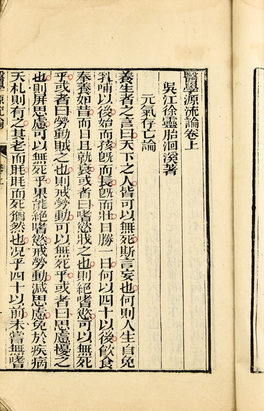 醫學源流論卷上
吳江徐靈胎洄溪著
元氣存亡論
養生者之言曰天下之人皆可以無死斯言妄也何則人生自免
乳哺以後始而孩既而長既而壯日勝一日何以四十以後飲食
奉養如昔而日且就衰或者曰嗜慾戕之也則絕嗜慾可以無死
乎或者曰勞動賊之也則戒勞動可以無死乎或者曰思慮擾之
也則屏思慮可以無死乎果能絕嗜慾戒勞動減思慮免於疾病
夭札則有之其老而眊眊而死猶然也况乎四十以前未嘗無嗜